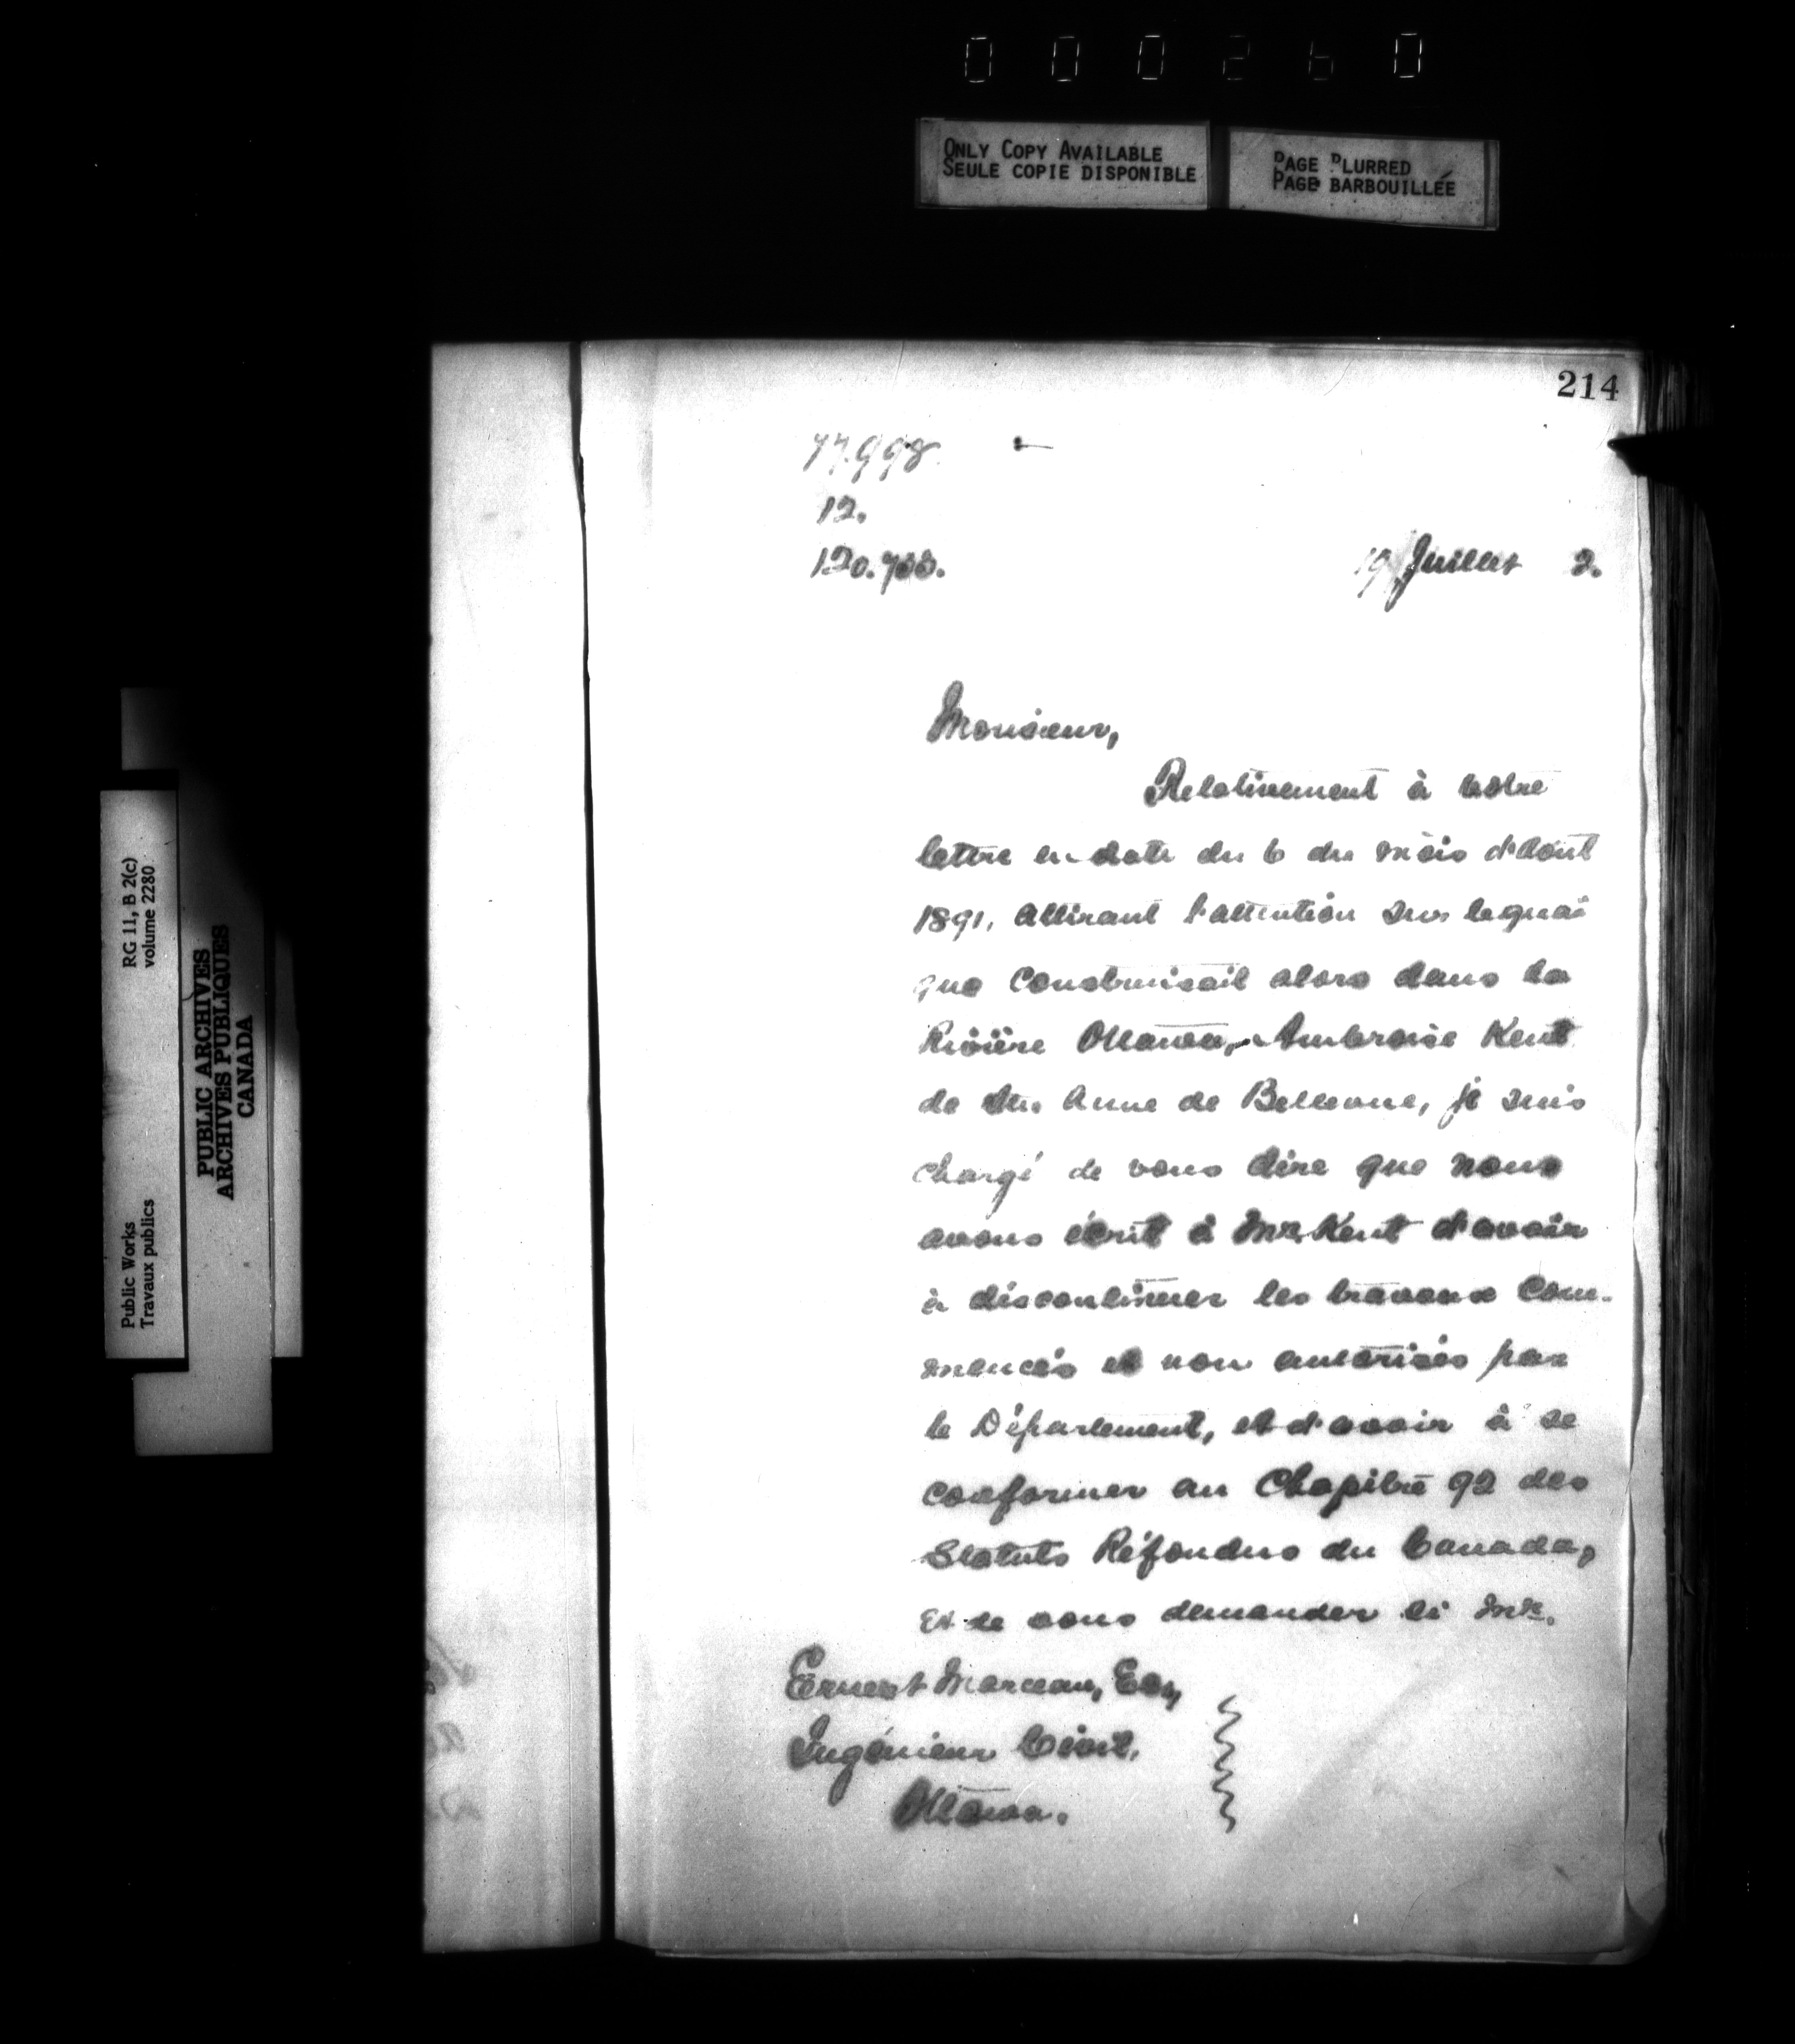 000260
ONLY COPY AVAILABLE
SEULE COPIE DISPONIBLE
PAGE BLURRED
PAGE BARBOUILLÉE
RG 11, B 2(c)
volume 2280
Public Works
Travaux publics
PUBLIC ARCHIVES
ARCHIVES PUBLIQUES
CANADA
214
77.998.
12.
19 Juillet 2.
Monsieur,
Relativement à votre
lettre en date du 6 du mois d'Août
1891, attirant l'attention sur le quai
que Construisait alors dans la
Rivière Ottawa, Ambroise Kent
de Ste. Anne de Bellevue, je suis
chargé de vous dire que nous
avons écrit à Mr. Kent d'avoir
à discontinuer les travaux Com-
mencés et non autorisés par
le Département, et d'avoir à se
conformer au Chapitre 92 des
Statuts Réfondus du Canada,
Et de vous demander si Mr.
Ernest Marceau, Esq,
Ingénieur Civil,
Ottawa.